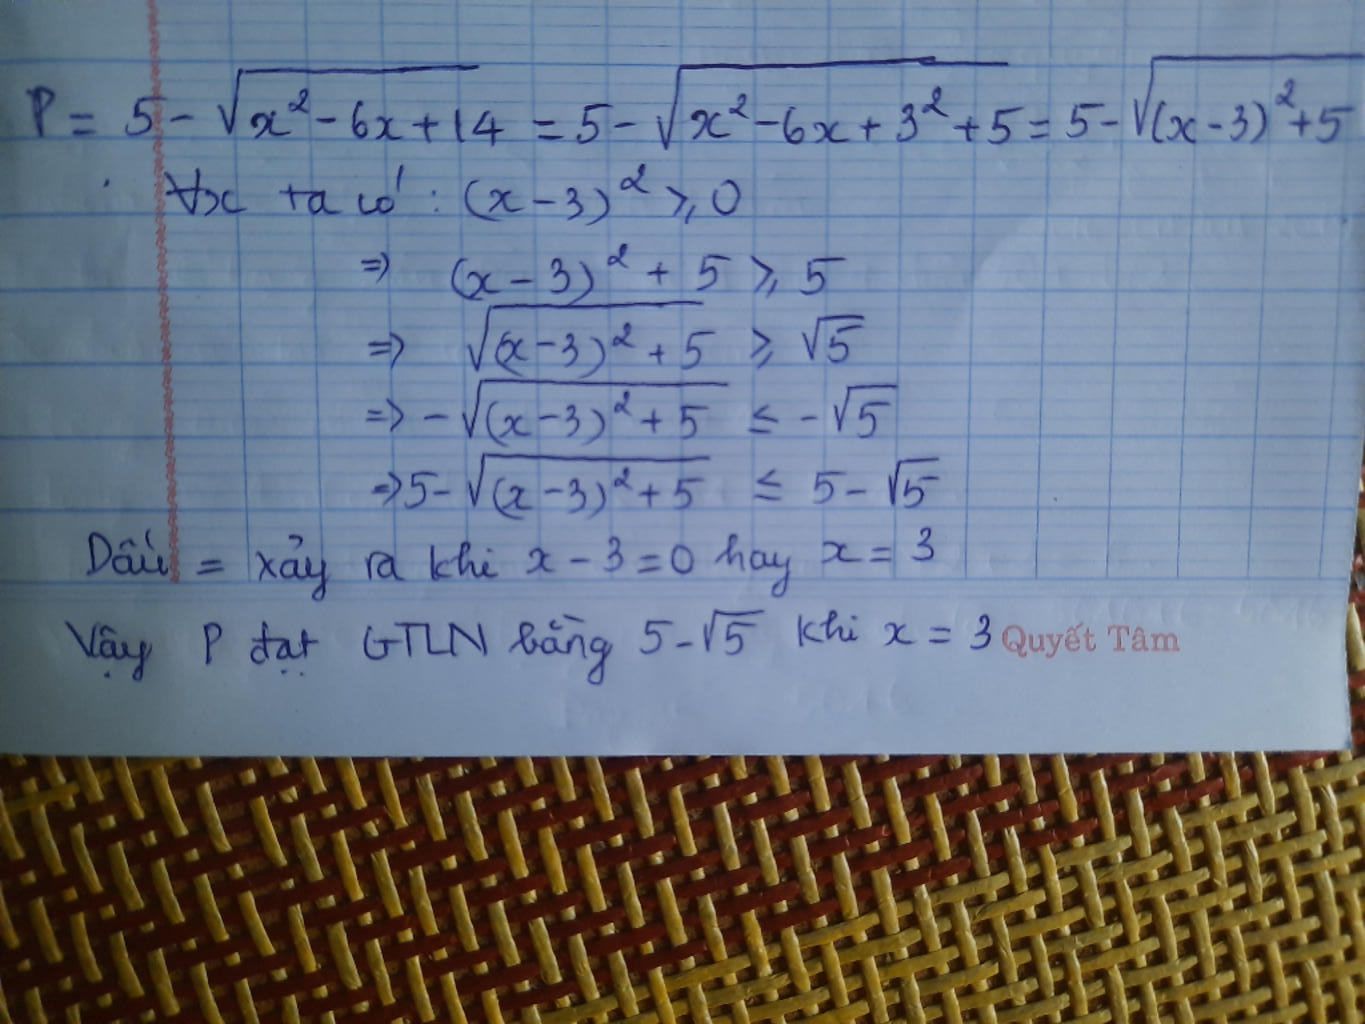 P = 5 - √(x² - 6x + 14) = 5 - √(x² - 6x + 3² + 5) = 5 - √((x - 3)² + 5)
∀x ta có : (x - 3)² ≥ 0
⇒ (x - 3)² + 5 ≥ 5
⇒ √((x - 3)² + 5) ≥ √5
⇒ - √((x - 3)² + 5) ≤ - √5
⇒ 5 - √((x - 3)² + 5) ≤ 5 - √5
Dấu = xảy ra khi x - 3 = 0 hay x = 3
Vậy P đạt GTLN bằng 5 - √5 khi x = 3 Quyết Tâm